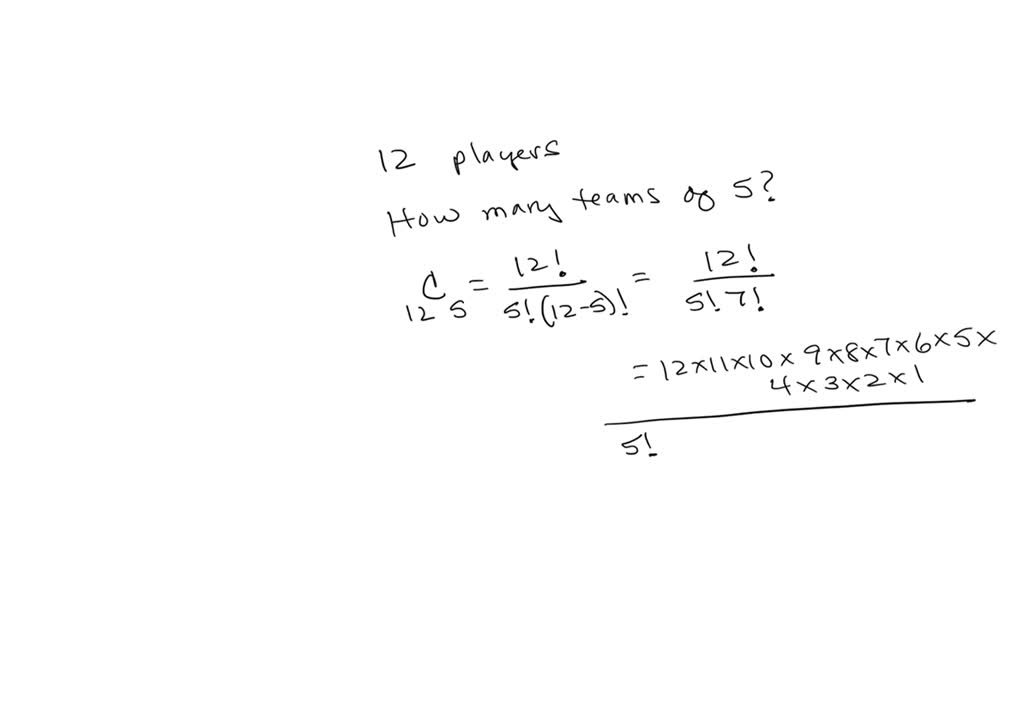 12 players
How many teams of 5?
₁₂C₅ = 12!/5!(12-5)! = 12!/5!7!
= 12×11×10×9×8×7×6×5×
4×3×2×1
5!